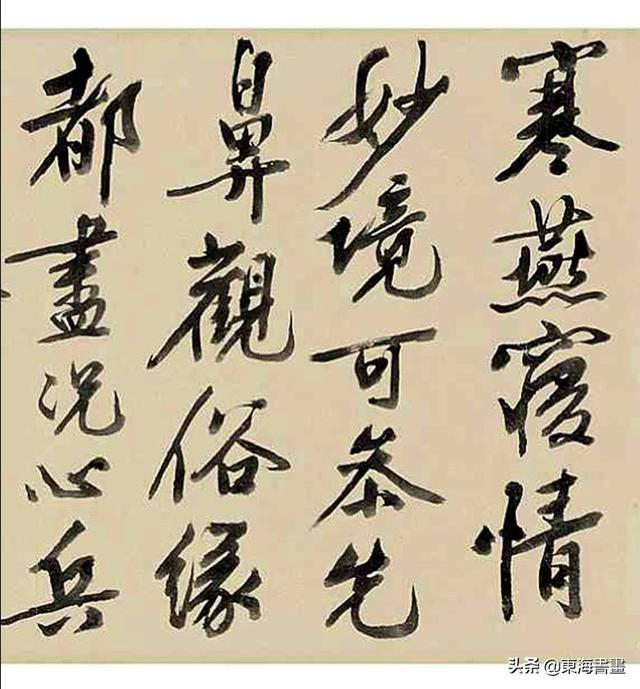 寒燕寢情
妙境可参先
鼻觀俗緣
都盡况心兵
头条 @東海書畫